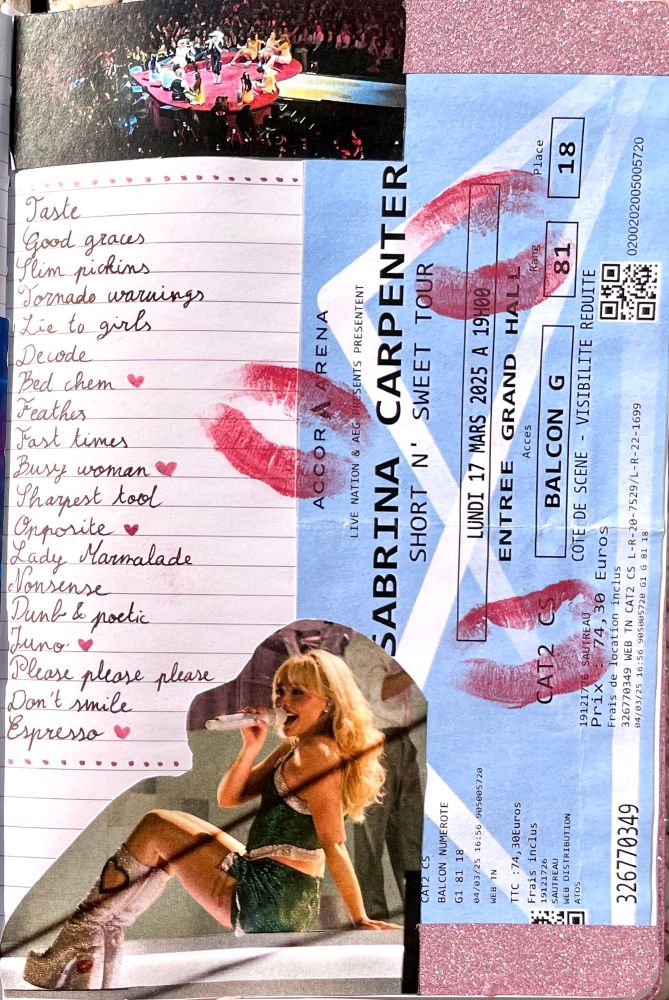 Taste
Good graces
Slim pickins
Tornado warnings
Lie to girls
Decode
Bed chem
Feathes
Fast times
Busy woman
Sharpest tool
Opposite
Lady Marmalade
Nonsense
Dunb & poetic
Juno
Please please please
Don't smile
Espresso
ACCOR ARENA
LIVE NATION & AEG PRESENTS PRESENTENT
SABRINA CARPENTER
SHORT N' SWEET TOUR
LUNDI 17 MARS 2025 A 19H00
ENTREE GRAND HALL
Acces Rang Place
BALCON G 81 18
COTE DE SCENE - VISIBILITE REDUITE
CAT2 CS
19121726 SAUTREAU
Prix : 74,30 Euros
Frais de location inclus
326770349 WEB TN CAT2 CS L-R-20-7529/L-R-22-1699
04/03/25 16:56 905005720 G1 G 81 18
0200202005005720
CAT2 CS
BALCON NUMEROTE
G1 81 18
04/03/25 16:56 905005720
WEB TN
TTC :74,30Euros
Frais inclus
19121726
SAUTREAU
WEB DISTRIBUTION
ATOS
326770349